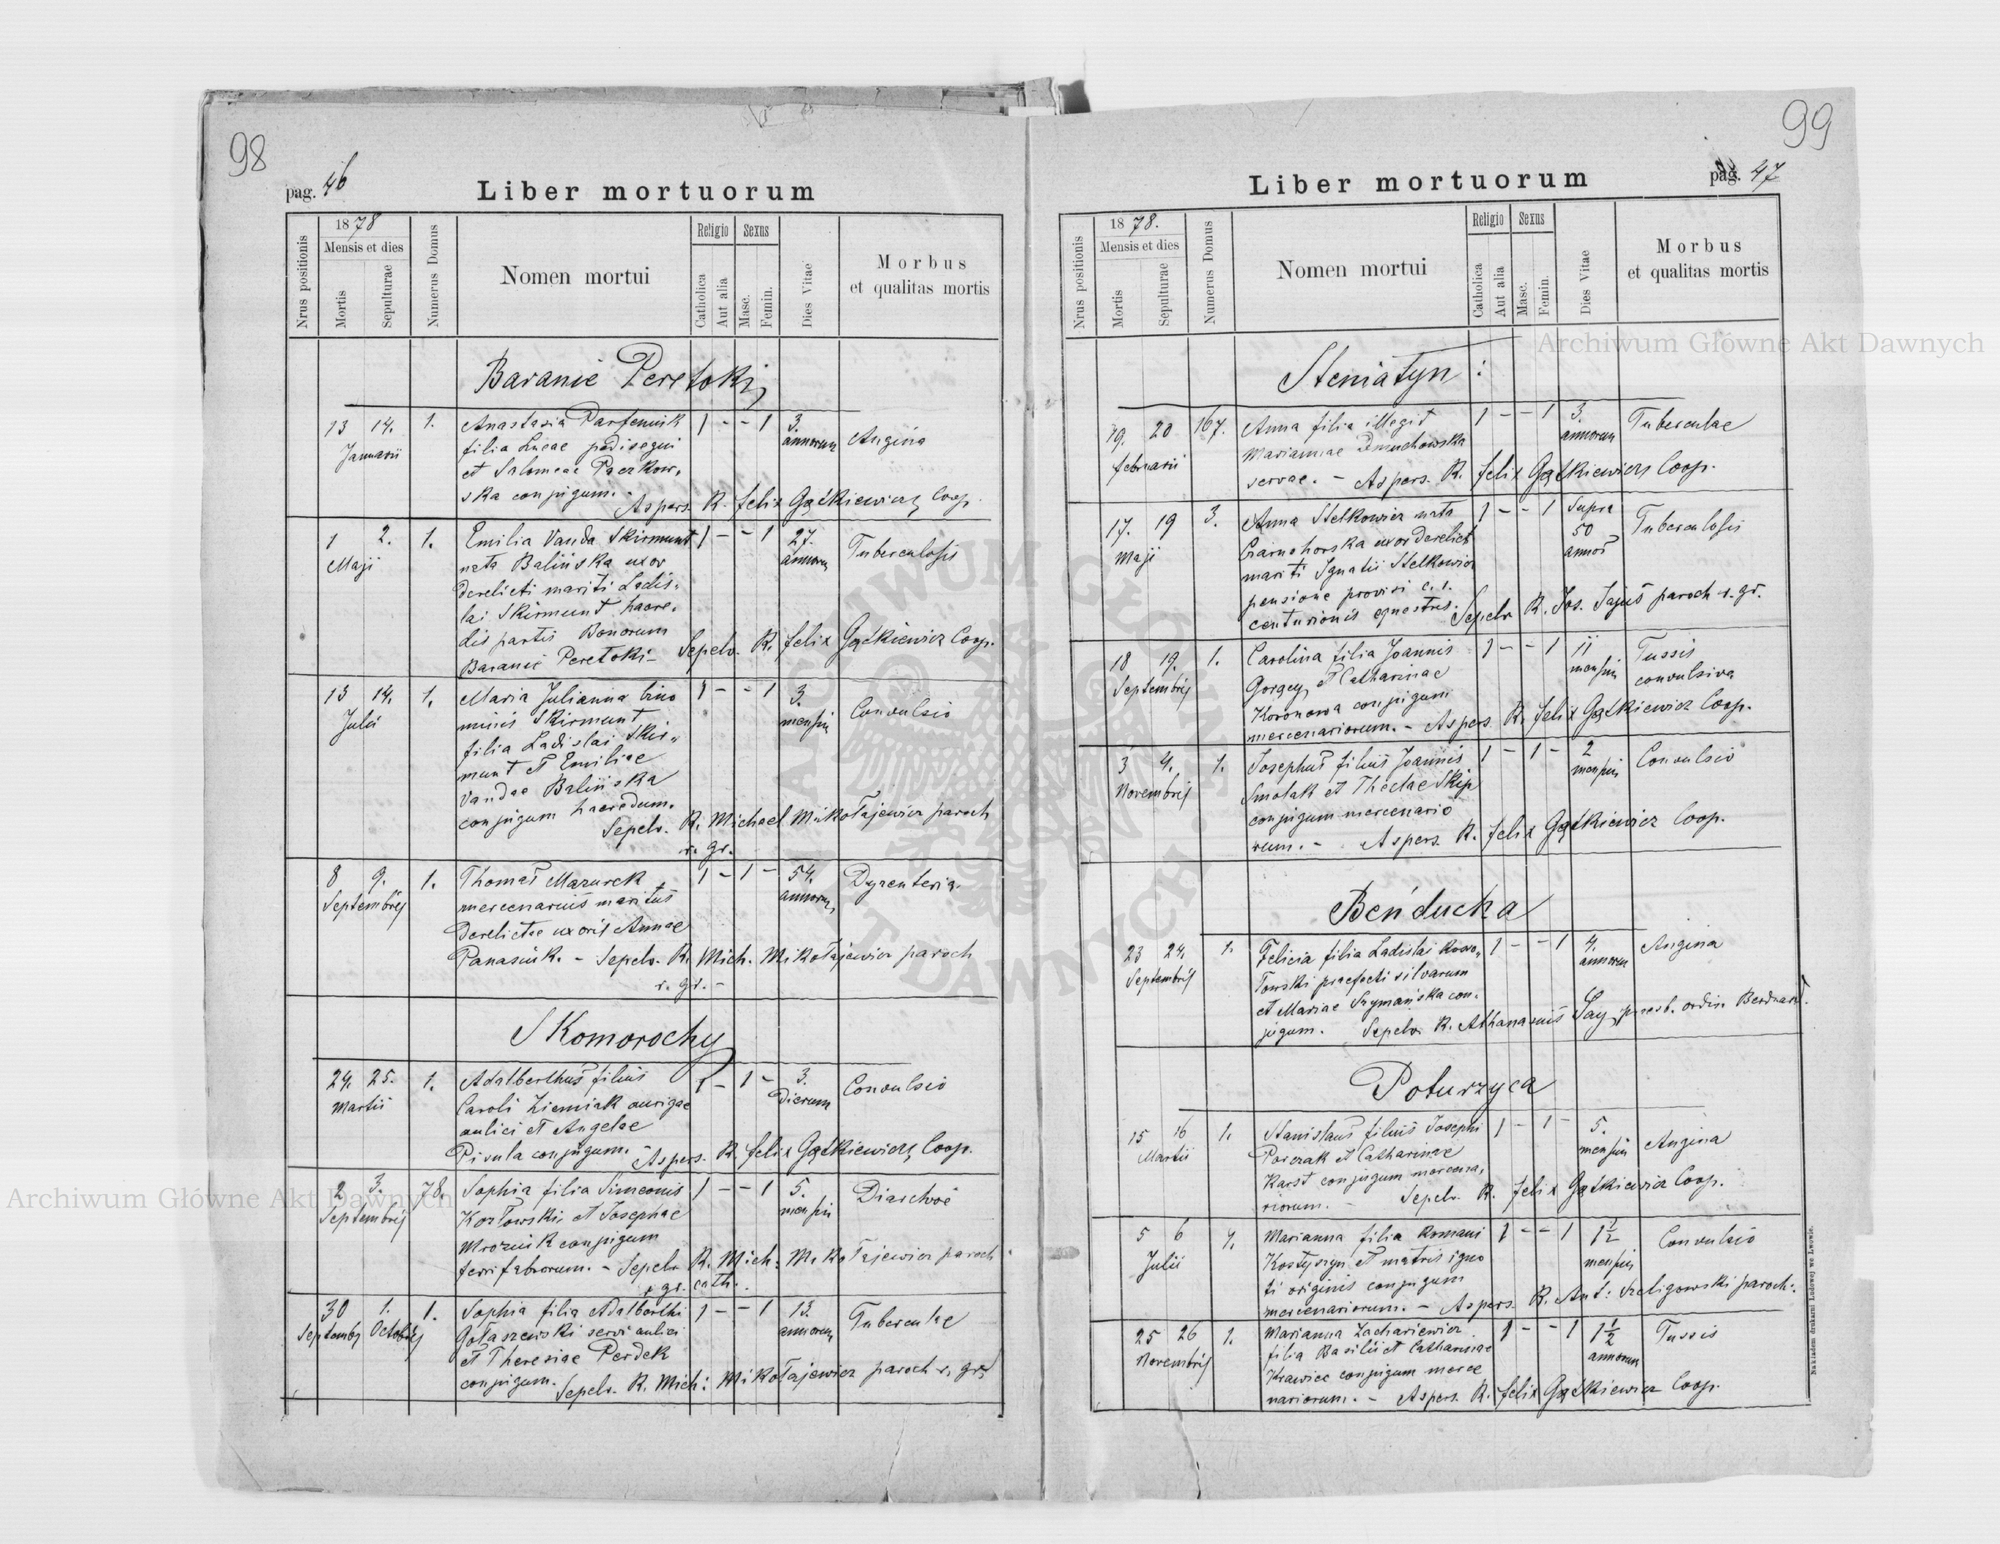 98
pag. 46
Liber mortuorum
Nrus positionis
1878
Mensis et dies
Mortis
Sepulturae
Numerus Domus
Nomen mortui
Religio
Catholica
Aut alia
Sexus
Masc.
Femin.
Dies Vitae
Morbus
et qualitas mortis
Baranie Peretoki
13 14. 1. Anastasia Parfeniuk 1 - - 1 3.
Januarii filia Lucae pedisequi annorum Angina
et Salomeae Paczkow,
ska conjugum. -
Aspers. R. Felix Gątkiewicz Coop.
1 2. 1. Emilia Vanda Skirmunt 1 - - 1 27.
Maji nata Balińska uxor annorum Tuberculosis
derelicti mariti Ladis,
lai Skirmunt haere,
dis partis Bonorum
Baranie Peretoki - Sepelv. R. Felix Gątkiewicz Coop.
13 14. 1. Maria Julianna bino 1 - - 1 3.
Julii minis Skirmunt mensium Convulsio
filia Ladislai Skir,
munt et Emiliae
Vandae Balińska
conjugum haeredum.
Sepelv. R. Michael Mikołajewicz paroch
r. gr.
8 9. 1. Thomas Mazurek 1 - 1 - 54.
Septembris mercenarius maritus annorum Dyzenteria
derelictae uxoris Annae
Panasiuk. - Sepelv. R. Mich. Mikołajewicz paroch
r. gr. -
Skomorochy
24. 25. 1. Adalberthus filius 1 - 1 - 3.
Martii Caroli Ziemiak aurigae Dierum Convulsio
aulici et Angelae
Pivula conjugum. Aspers. R. Felix Gątkiewicz Coop.
2 3. 78. Sophia filia Simeonis 1 - - 1 5.
Septembris Kozłowski et Josephae mensium Diarrhoe
Mrozuik conjugum
ferri fabrorum. - Sepelv. R. Mich: Mikołajewicz paroch
r. gr. cath.
30 1. 1. Sophia filia Adalberthi 1 - - 1 13.
Septembr Octobris Gołaszewski servi aulici annorum Tuberculae
et Theresiae Perdek
conjugum. Sepelv. R. Mich: Mikołajewicz paroch r. gr.
99
pag. 47
Liber mortuorum
Nrus positionis
1878.
Mensis et dies
Mortis
Sepulturae
Numerus Domus
Nomen mortui
Religio
Catholica
Aut alia
Sexus
Masc.
Femin.
Dies Vitae
Morbus
et qualitas mortis
Steniatyn:
19. 20 167. Anna filia illegit 1 - - 1 3.
februarii Mariannae annorum Tuberculae
servae. - Aspers. R. Felix Gątkiewicz Coop.
17. 19 3. Anna Stelkowicz nata 1 - - 1 Supra 50
Maji Czarnohorska uxor derelict annos Tuberculosis
mariti Ignatii Stelkowicz
pensione provisi c. r.
centurionis equestris. Sepelv R. Jos. paroch r. gr.
18 19. 1. Carolina filia Joannis 1 - - 1 11
Septembris Gorgey et Catharinae mensium Tussis convulsiva
Koronowa conjugum
mercenariorum. - Aspers. R. Felix Gątkiewicz Coop.
3 4. 1. Josephus filius Joannis 1 - 1 - 2
Novembris Smolak et Theclae Skip mensium Convulsio
conjugum mercenario
rum. - Aspers. R. Felix Gątkiewicz Coop.
Beńducha
23 24. 1. Felicia filia Ladislai 1 - - 1 4.
Septembris praefecti silvarum annorum Angina
et Mariae Szymańska con,
jugum. Sepelv. R. Athanasius presb. ordin. Bernard.
Poturzyca
15 16 1. Stanislaus filius Josephi 1 - 1 - 5.
Martii Porczak et Catharinae mensium Angina
Karst conjugum mercena,
riorum. - Sepelv. R. Felix Gątkiewicz Coop.
5 6 4. Marianna filia Romani 1 - - 1 1 1/2
Julii et matris igno mensium Convulsio
ti originis conjugum
mercenariorum. - Aspers. R. Ant: Szeligowski paroch:
25 26 1. Marianna Zachariewicz 1 - - 1 1 1/2
Novembris filia Basilii et Catharinae annorum Tussis
Krawiec conjugum merce
nariorum. - Aspers. R. Felix Gątkiewicz Coop.
Nakładem drukarni Ludowej we Lwowie.
Archiwum Główne Akt Dawnych
Archiwum Główne Akt Dawnych
ARCHIWUM GŁÓWNE AKT DAWNYCH